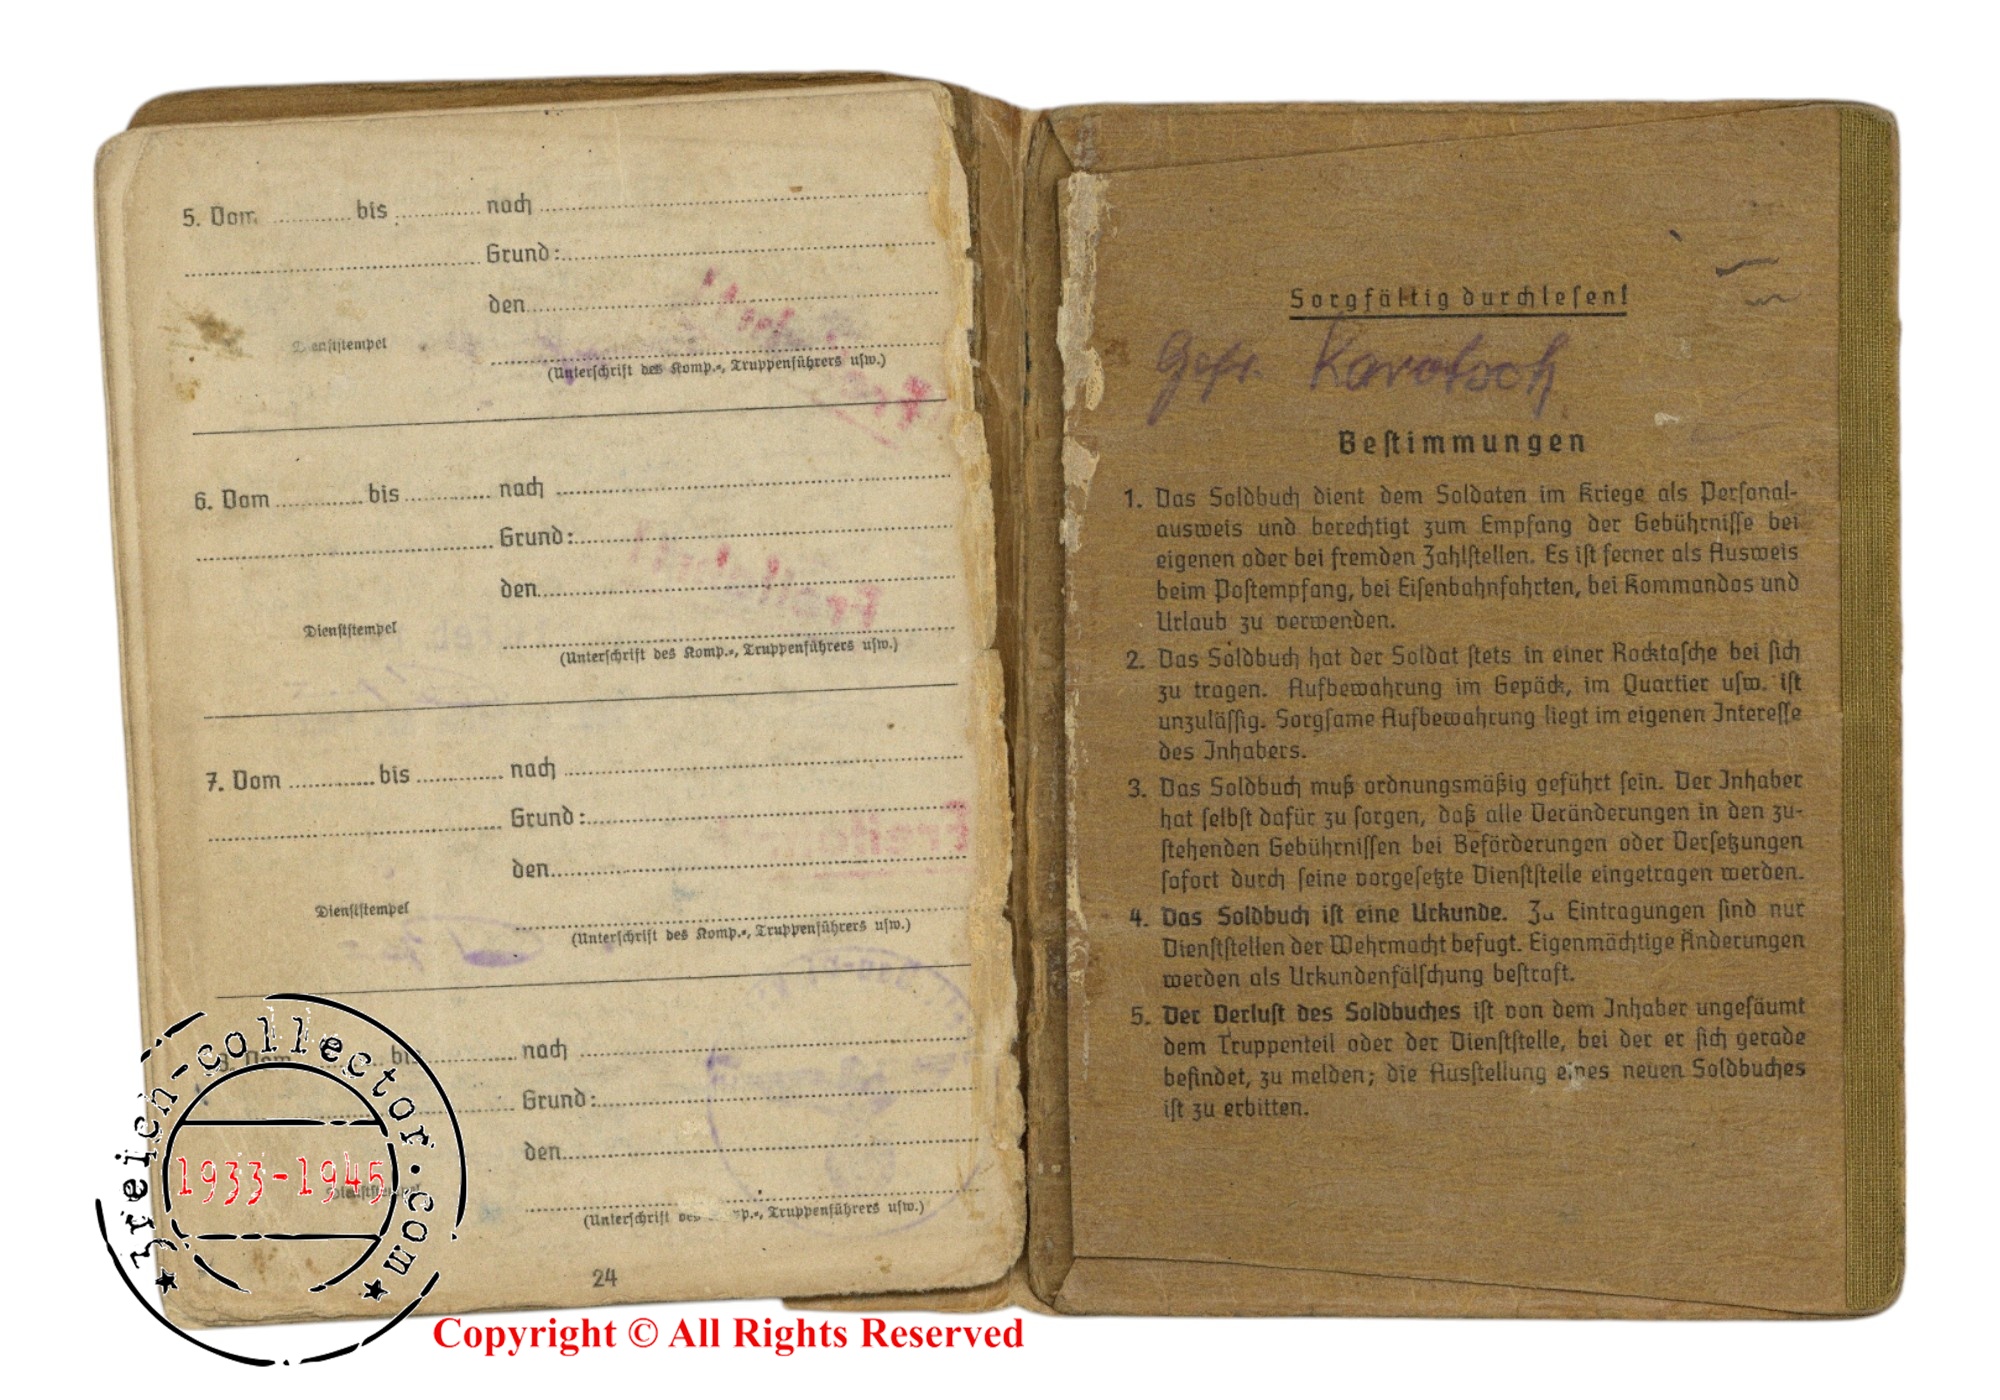 5. Vom bis nach
Grund:
den
Dienststempel
(Unterschrift des Komp.-, Truppenführers usw.)
6. Vom bis nach
Grund:
den
Dienststempel
(Unterschrift des Komp.-, Truppenführers usw.)
7. Vom bis nach
Grund:
den
Dienststempel
(Unterschrift des Komp.-, Truppenführers usw.)
8. Vom bis nach
Grund:
den
Dienststempel
(Unterschrift des Komp.-, Truppenführers usw.)
24
Sorgfältig durchlesen!
Gefr. Karotsch
Bestimmungen
1. Das Soldbuch dient dem Soldaten im Kriege als Personal-
ausweis und berechtigt zum Empfang der Gebührnisse bei
eigenen oder bei fremden Zahlstellen. Es ist ferner als Ausweis
beim Postempfang, bei Eisenbahnfahrten, bei Kommandos und
Urlaub zu verwenden.
2. Das Soldbuch hat der Soldat stets in einer Rocktasche bei sich
zu tragen. Aufbewahrung im Gepäck, im Quartier usw. ist
unzulässig. Sorgsame Aufbewahrung liegt im eigenen Interesse
des Inhabers.
3. Das Soldbuch muß ordnungsmäßig geführt sein. Der Inhaber
hat selbst dafür zu sorgen, daß alle Veränderungen in den zu-
stehenden Gebührnissen bei Beförderungen oder Versetzungen
sofort durch seine vorgesetzte Dienststelle eingetragen werden.
4. Das Soldbuch ist eine Urkunde. Zu Eintragungen sind nur
Dienststellen der Wehrmacht befugt. Eigenmächtige Änderungen
werden als Urkundenfälschung bestraft.
5. Der Verlust des Soldbuches ist von dem Inhaber ungesäumt
dem Truppenteil oder der Dienststelle, bei der er sich gerade
befindet, zu melden; die Ausstellung eines neuen Soldbuches
ist zu erbitten.
3reich-collector.com
1933-1945
Copyright © All Rights Reserved